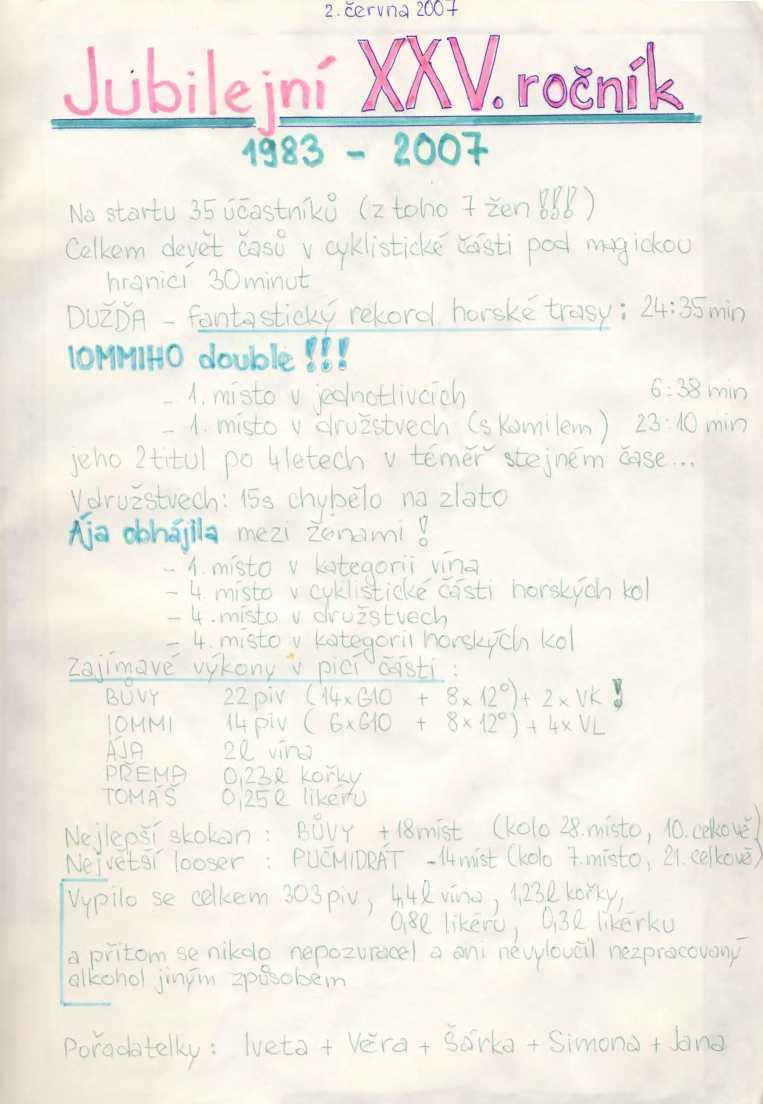 2. června 2007
Jubilejní XXV. ročník
1983 - 2007
Na startu 35 účastníků (z toho 7 žen !!!)
Celkem devět časů v cyklistické části pod magickou
hranicí 30 minut
DUŽĎA - fantastický rekord horské trasy : 24:35 min
IOMMIHO double !!!
- 1. místo v jednotlivcích 6:38 min
- 1. místo v družstvech (s Kamilem) 23:10 min
jeho 2 titul po 4 letech v téměř stejném čase...
V družstvech: 15s chybělo na zlato
Ája obhájila mezi ženami !
- 1. místo v kategorii vína
- 4. místo v cyklistické části horských kol
- 4. místo v družstvech
- 4. místo v kategorii horských kol
Zajímavé výkony v picí části :
BŮVY 22 piv (14x G10 + 8x 12°) + 2x VK !
IOMMI 14 piv (6x G10 + 8x 12°) + 4x VL
ÁJA 2l vína
PŘEMA 0,23l kořky
TOMÁŠ 0,25l likéru
Nejlepší skokan : BŮVY +18 míst (kolo 28. místo, 10. celkově)
Největší looser : PUČMIDRÁT -14 míst (kolo 7. místo, 21. celkově)
Vypilo se celkem 303 piv, 4,4l vína, 1,23l kořky,
0,8l likéru, 0,3l likérku
a přitom se nikdo nepozvracel a ani nevyloučil nezpracovaný
alkohol jiným způsobem
Pořadatelky : Iveta + Věra + Šárka + Simona + Jana